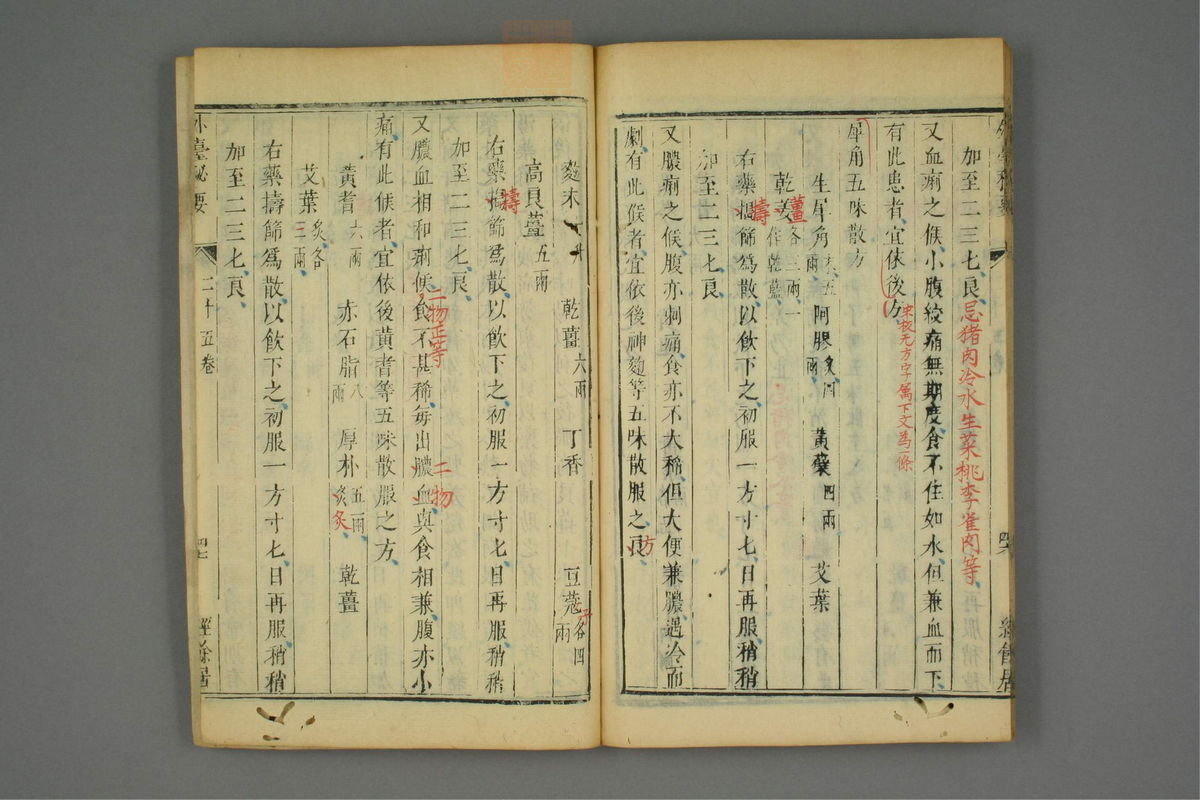 加至二三七良忌猪肉冷水生菜桃李雀肉等
又血痢之候小腹絞痛無期度食不住如水但兼血而下
有此患者宜依後方
宋板无方字属下文爲一條
犀角五味散方
生犀角末五兩 阿膠炙四兩 黃蘗四兩 艾葉
乾姜各三兩一作乾藍
薑
右藥搗篩爲散以飲下之初服一方寸七日再服稍稍
擣
加至二三七良
又膿痢之候腹亦刺痛食亦不大稀但大便兼膿遇冷而
劇有此候者宜依後神麴等五味散服之良
方
麴末
乾薑六兩 丁香 豆蔻各四兩
高良薑五兩
右藥搗篩爲散以飲下之初服一方寸七日再服稍稍
擣
加至二三七良
二物正等
二物
又膿血相和痢候食不甚稀每出膿血與食相兼腹亦小
痛有此候者宜依後黃耆等五味散服之方
黃耆六兩 赤石脂八兩 厚朴五兩炙 乾薑
炙
艾葉炙各三兩
右藥擣篩爲散以飲下之初服一方寸七日再服稍稍
加至二三七良
外臺秘要 二十五卷 經餘居